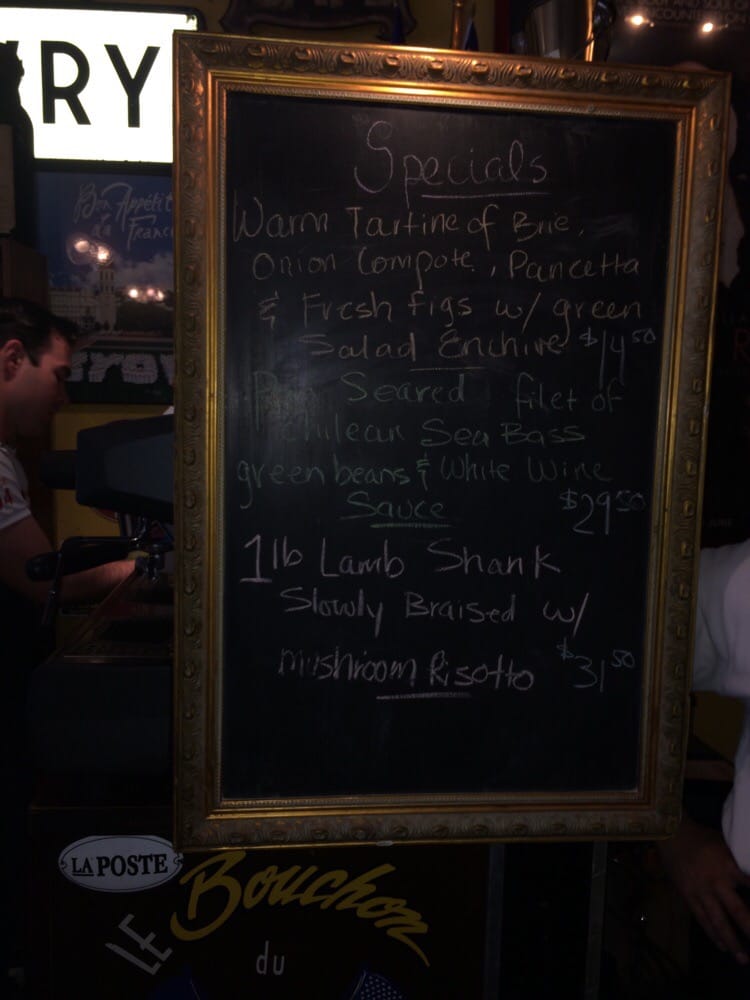 RY
Bon Appétit
Specials
Warm Tartine of Brie,
Onion Compote, Pancetta
& Fresh figs w/ green
Salad Enchive $14.50
Pan Seared filet of
Chilean Sea Bass
green beans & White Wine
Sauce $29.50
1 lb Lamb Shank
Slowly Braised w/
mushroom Risotto $31.50
LA POSTE
LE Bouchon
du